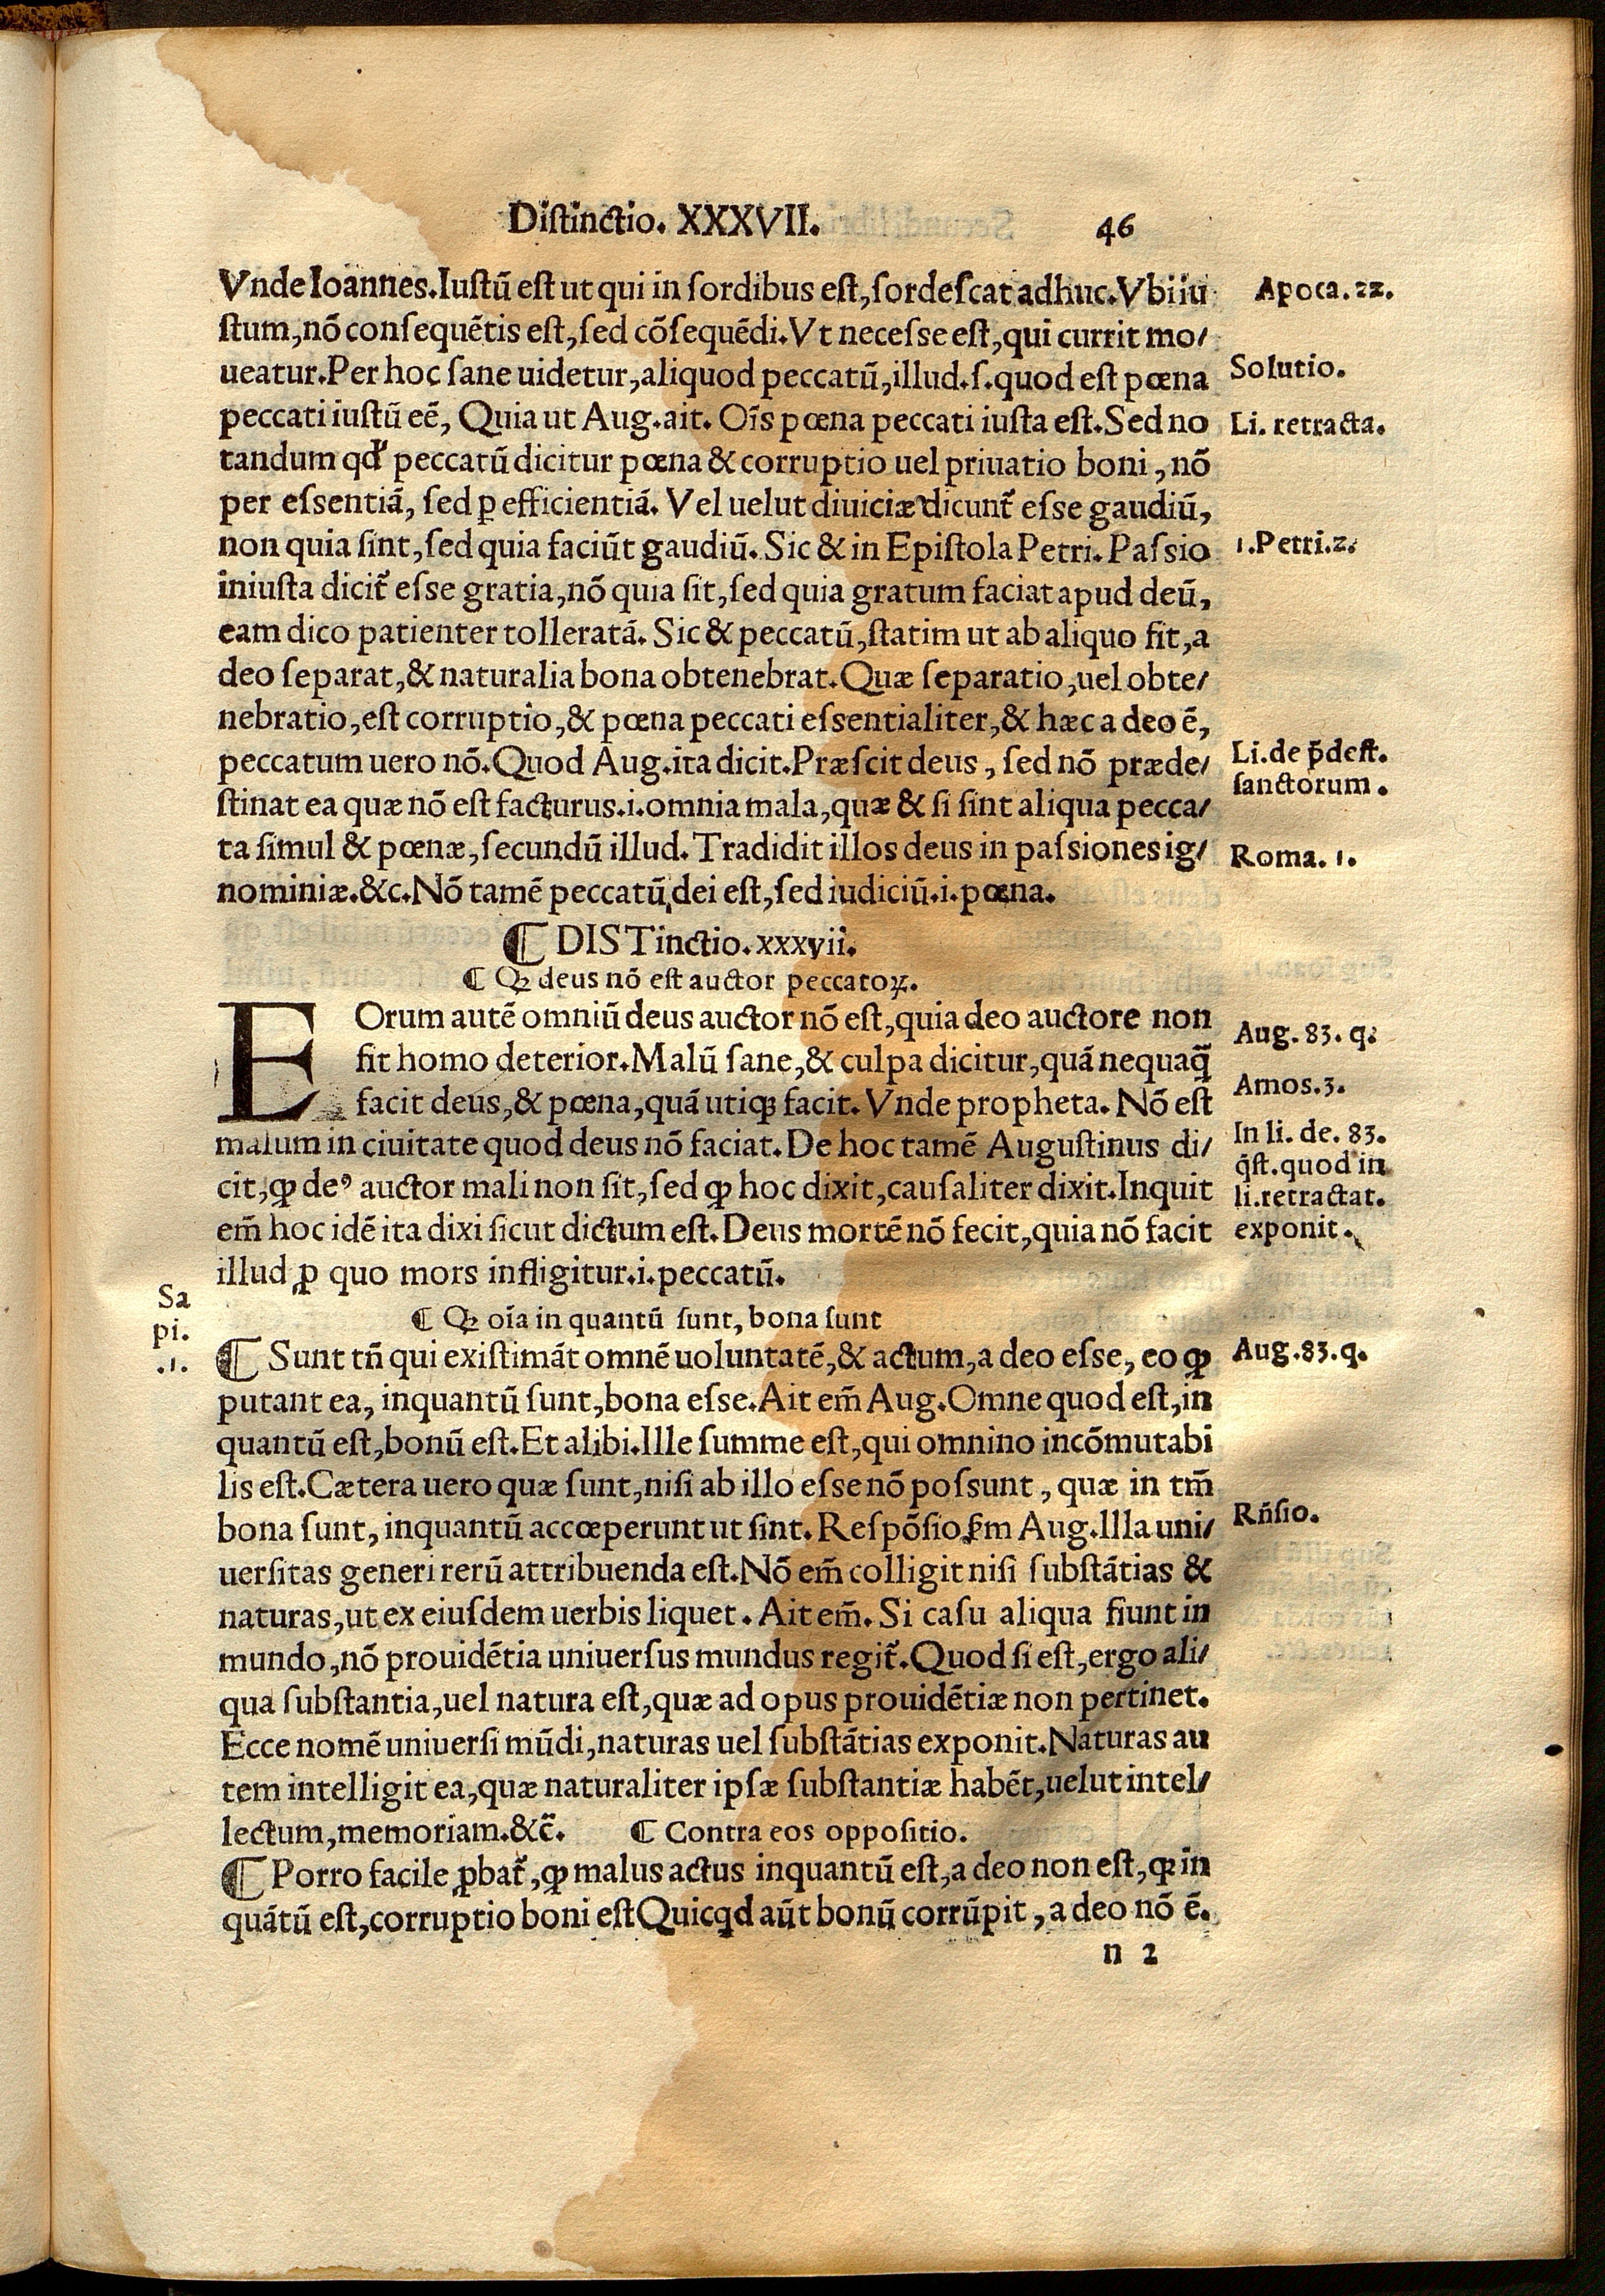 Distinctio. XXXVII. 46
Vnde Ioannes. Iustũ est ut qui in sordibus est, sordescat adhuc. Vbi iu
Apoca. 22.
stum, nõ consequẽtis est, sed cõsequẽdi. Vt necesse est, qui currit mo/
ueatur. Per hoc sane uidetur, aliquod peccatũ, illud. s. quod est pœna
Solutio.
peccati iustũ eẽ, Quia ut Aug. ait. Oĩs pœna peccati iusta est. Sed no
Li. retracta.
tandum qđ peccatũ dicitur pœna & corruptio uel priuatio boni, nõ
per essentiã, sed ꝑ efficientiã. Vel uelut diuiciæ dicunt̃ esse gaudiũ,
non quia sint, sed quia faciũt gaudiũ. Sic & in Epistola Petri. Passio
1. Petri. 2.
iniusta dicit̃ esse gratia, nõ quia sit, sed quia gratum faciat apud deũ,
eam dico patienter tolleratã. Sic & peccatũ, statim ut ab aliquo fit, a
deo separat, & naturalia bona obtenebrat. Quæ separatio, uel obte/
nebratio, est corruptio, & pœna peccati essentialiter, & hæc a deo ẽ,
peccatum uero nõ. Quod Aug. ita dicit. Præscit deus, sed nõ præde/
Li. de p̃dest.
sanctorum.
stinat ea quæ nõ est facturus. i. omnia mala, quæ & si sint aliqua pecca/
ta simul & pœnæ, secundũ illud. Tradidit illos deus in passiones ig/
Roma. 1.
nominiæ. &c. Nõ tamẽ peccatũ, dei est, sed iudiciũ. i. pœna.
¶ DISTinctio. xxxvii.
¶ Qꝫ deus nõ est auctor peccatoꝝ.
EOrum autẽ omniũ deus auctor nõ est, quia deo auctore non
Aug. 83. q.
fit homo deterior. Malũ sane, & culpa dicitur, quã nequaq̃
facit deus, & pœna, quã utiqꝫ facit. Vnde propheta. Nõ est
Amos. 3.
malum in ciuitate quod deus nõ faciat. De hoc tamẽ Augustinus di/
In li. de. 83.
q̃st. quod in
li. retractat.
exponit.
cit, ꝙ deꝰ auctor mali non sit, sed ꝙ hoc dixit, causaliter dixit. Inquit
em̃ hoc idẽ ita dixi sicut dictum est. Deus mortẽ nõ fecit, quia nõ facit
illud ꝓ quo mors infligitur. i. peccatũ.
Sa
pi.
.1.
¶ Qꝫ oĩa in quantũ sunt, bona sunt
¶ Sunt tñ qui existimãt omnẽ uoluntatẽ, & actum, a deo esse, eo ꝙ
Aug. 83. q.
putant ea, inquantũ sunt, bona esse. Ait em̃ Aug. Omne quod est, in
quantũ est, bonũ est. Et alibi. Ille summe est, qui omnino incõmutabi
lis est. Cætera uero quæ sunt, nisi ab illo esse nõ possunt, quæ in tm̃
bona sunt, inquantũ accœperunt ut sint. Respõsio ẜm Aug. Illa uni/
Rñsio.
uersitas generi rerũ attribuenda est. Nõ em̃ colligit nisi substãtias &
naturas, ut ex eiusdem uerbis liquet. Ait em̃. Si casu aliqua fiunt in
mundo, nõ prouidẽtia uniuersus mundus regit̃. Quod si est, ergo ali/
qua substantia, uel natura est, quæ ad opus prouidẽtiæ non pertinet.
Ecce nomẽ uniuersi mũdi, naturas uel substãtias exponit. Naturas au
tem intelligit ea, quæ naturaliter ipsæ substantiæ habẽt, uelut intel/
lectum, memoriam. &c̃. ¶ Contra eos oppositio.
¶ Porro facile ꝓbat̃, ꝙ malus actus inquantũ est, a deo non est, ꝙ in
quãtũ est, corruptio boni est Quicqd aũt bonũ corrũpit, a deo nõ ẽ.
n 2